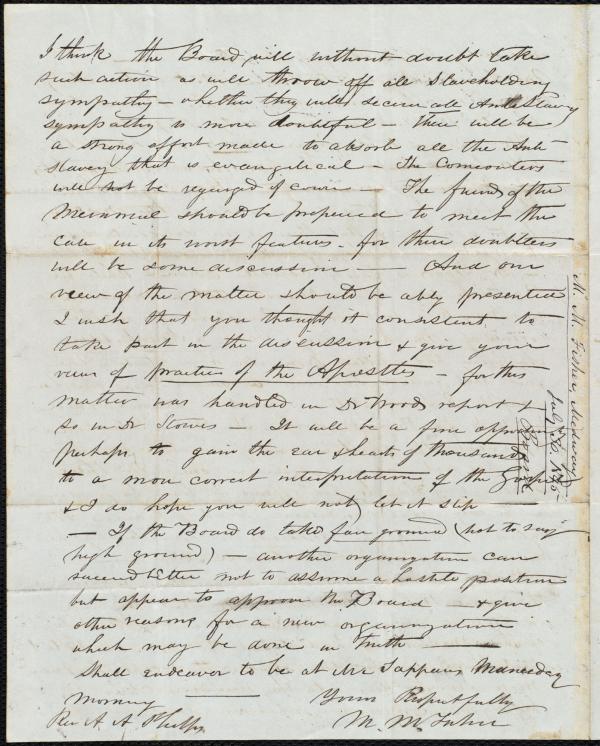 I think the Board will without doubt take
such action as will throw off all Slaveholding
sympathy – whether they will secure all Anti Slavery
sympathy is more doubtful – there will be
a strong effort made to absorb all the Anti-
slavery that is evangelical – The Comeouters
will not be regarded of course – The friends of the
Memorial should be prepared to meet the
case in its worst features – for there doubtless
will be some discussion — And our
view of the matter should be ably presented
I wish that you thought it consistent to
take part in the discussion & give your
view of practice of the Apostles – for this
matter was handled in Dr Woods report &
so in Dr Stowes – It will be a fine
perhaps to gain the ear & hearts of thousands
to a more correct interpretation of the
& I do hope you will not let it slip
— If the Board do take fair ground (not to say
high ground) – another organization can
succeed better not to assume a hostile position
but appear to approve the Board – & give
other reasons for a new organization
which may be done in truth —
Shall endeavor to be at Mr Tappans
morning — Yours Respectfully
Rev. A. A. Phelps M. M. Fisher
M. M. Fisher, Medway
July 26. 1845